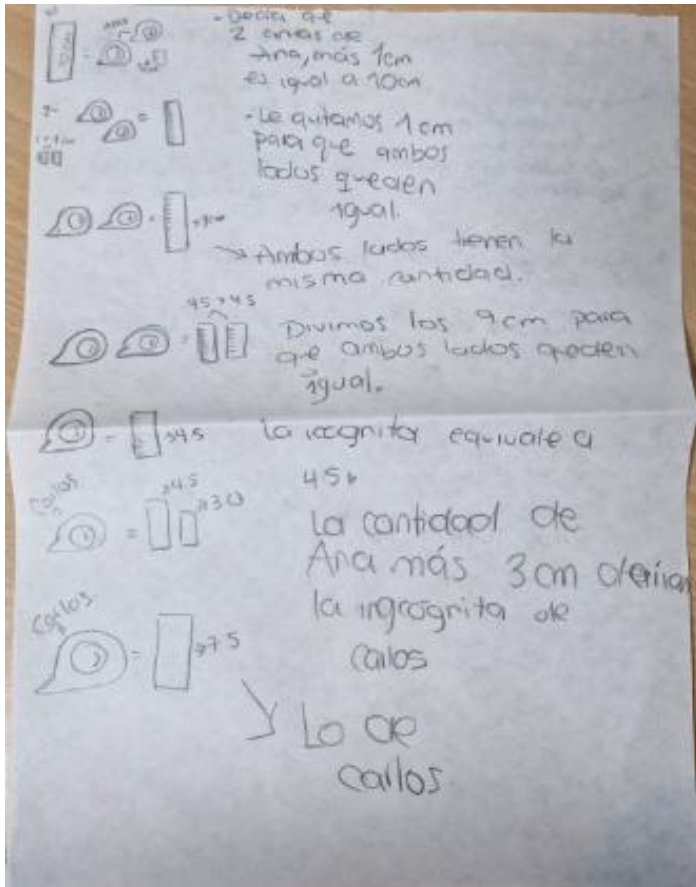 - Decía qe
2 cintas de
Ana, más 1cm
es igual a 10cm
2-
- Le quitamos 1 cm
para que ambos
lados queden
igual.
→ Ambos lados tienen la
misma cantidad.
45 > 45
Divimos los 9cm para
qe ambos lados queden
igual.
→ 45 la icognita equivale a
45
Carlos
→ 45
→ 30
La cantidad de
Ana más 3 cm
la ingrognita de
Carlos
Carlos
→ 75
Lo de
carlos.